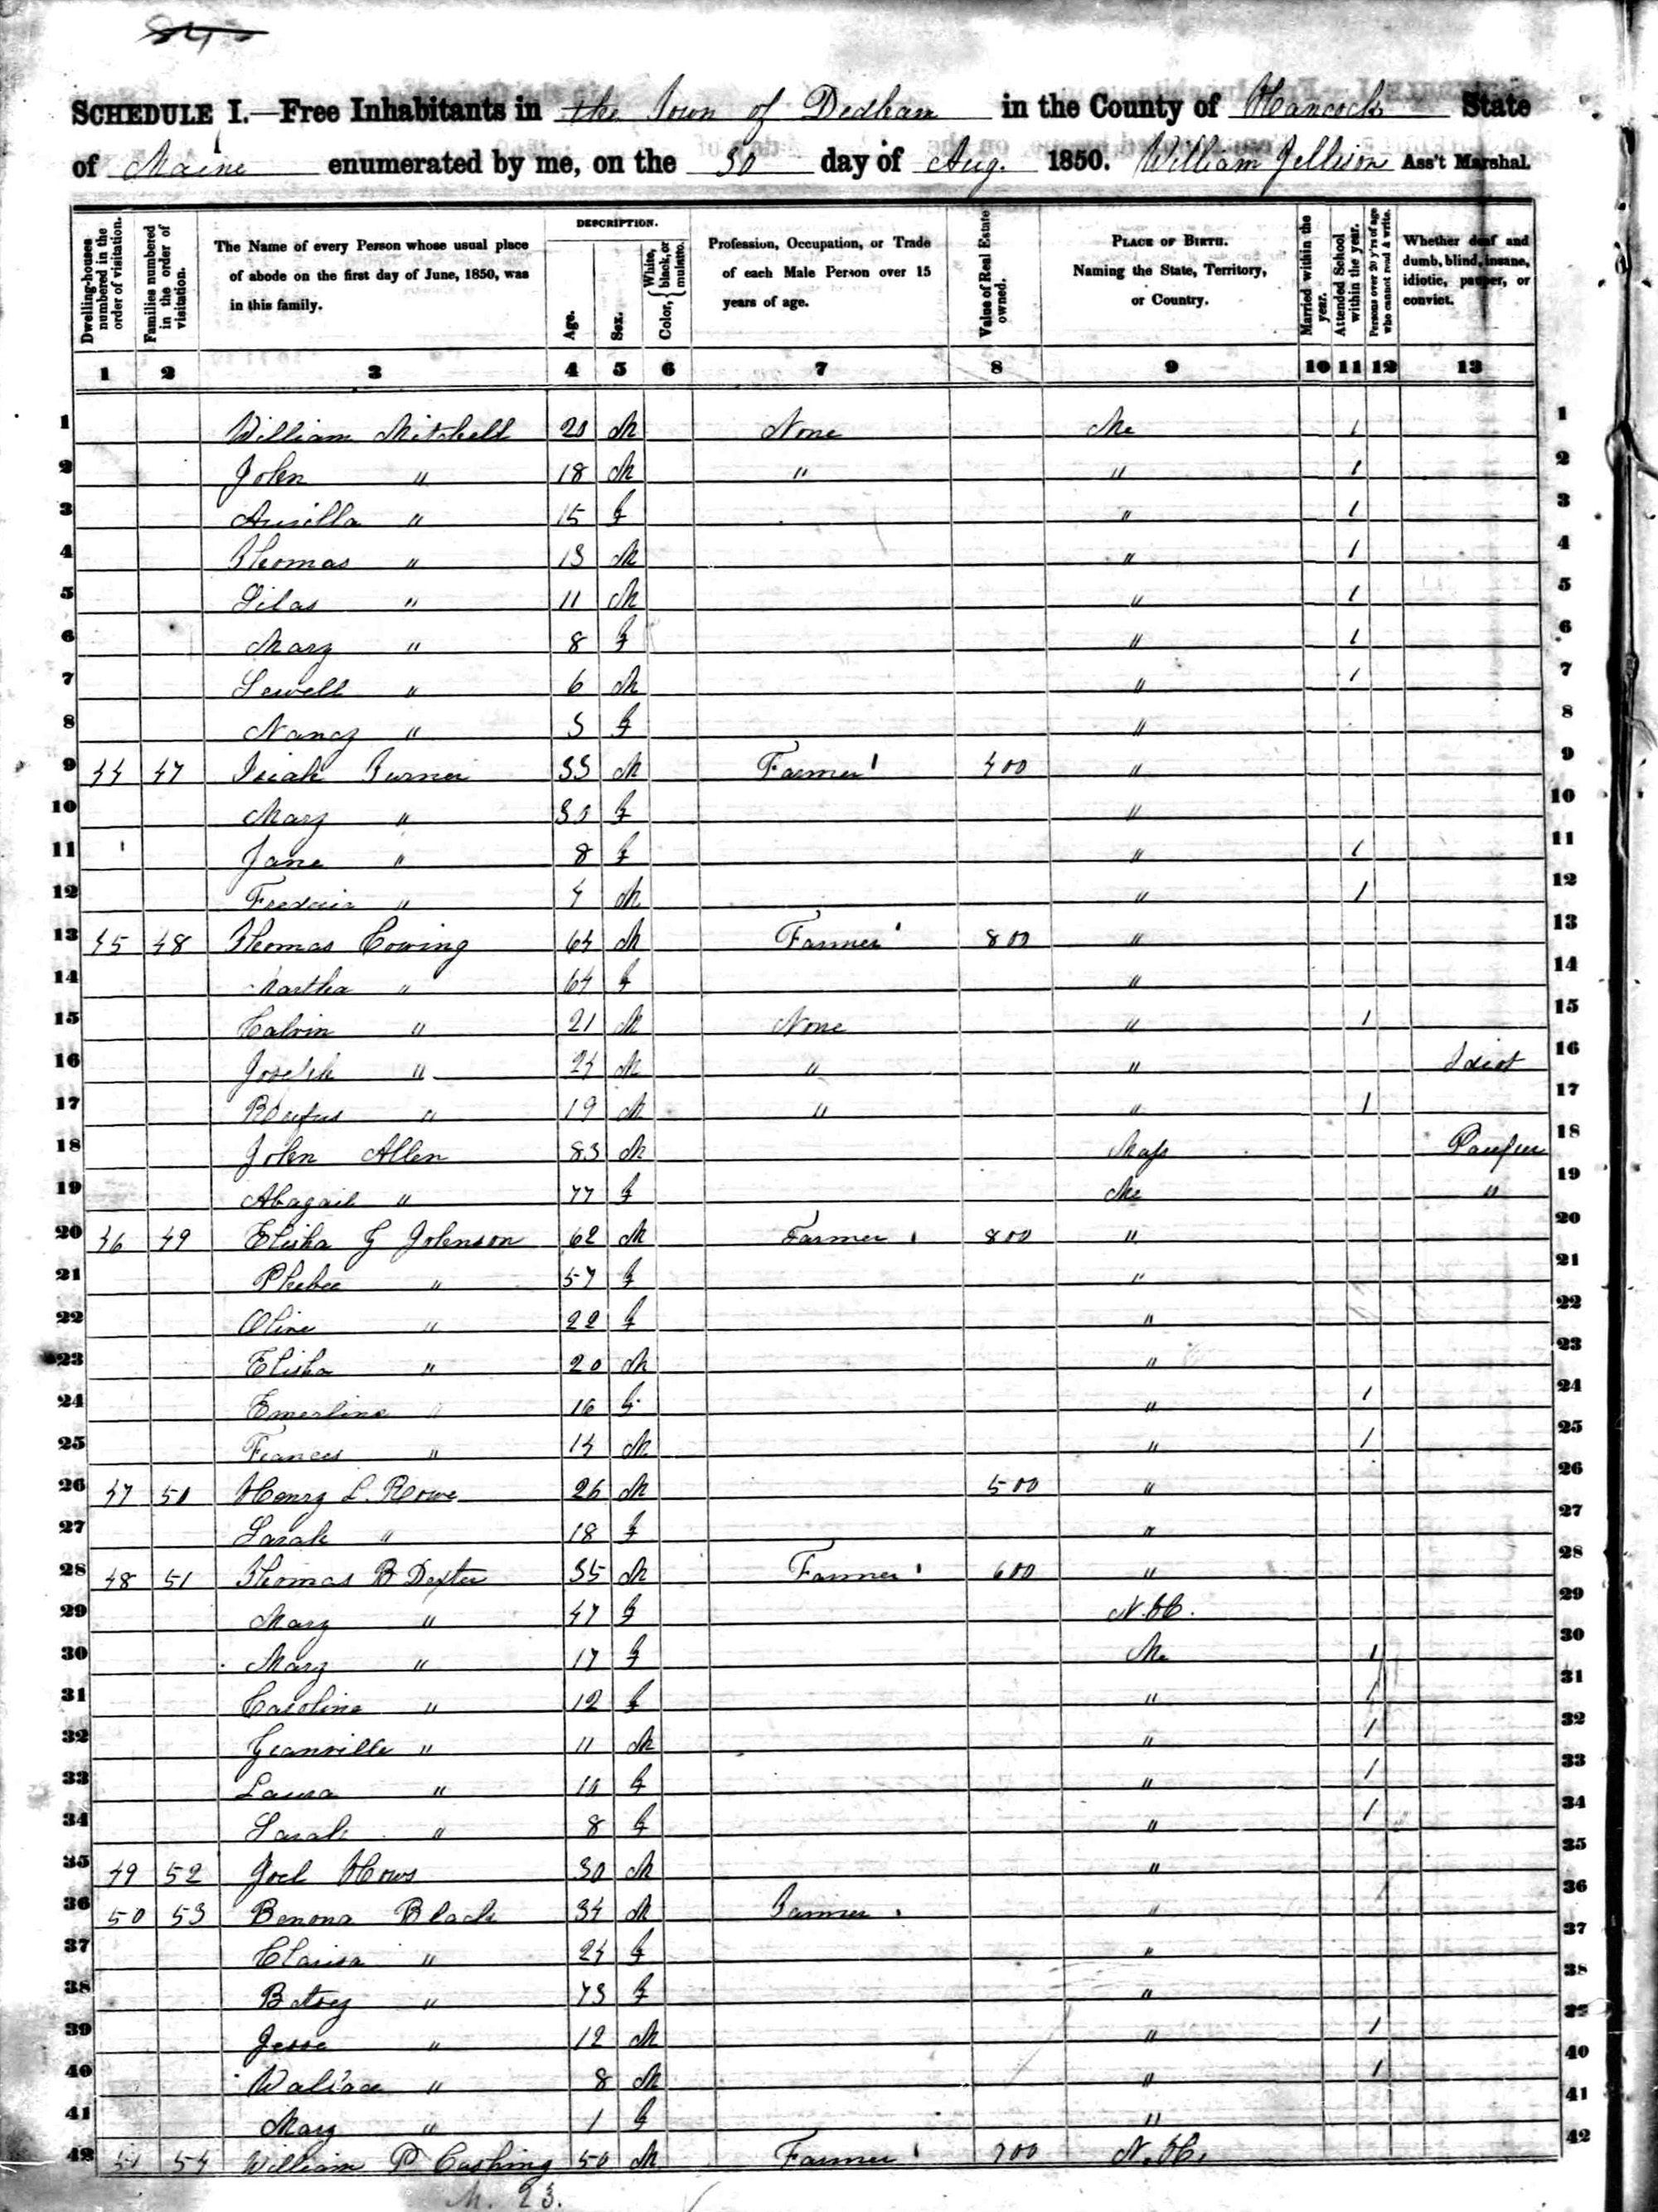 SCHEDULE I.—Free Inhabitants in the Town of Dedham in the County of Hancock State
of Maine enumerated by me, on the 30 day of Aug. 1850. William Jellison Ass't Marshal.
Dwelling-houses numbered in the order of visitation.
Families numbered in the order of visitation.
The Name of every Person whose usual place of abode on the first day of June, 1850, was in this family.
DESCRIPTION.
Age.
Sex.
Color, { White, black, or mulatto.
Profession, Occupation, or Trade of each Male Person over 15 years of age.
Value of Real Estate owned.
PLACE OF BIRTH. Naming the State, Territory, or Country.
Married within the year.
Attended School within the year.
Persons over 20 y'rs of age who cannot read & write.
Whether deaf and dumb, blind, insane, idiotic, pauper, or convict.
1 2 3 4 5 6 7 8 9 10 11 12 13
1 William Mitchell M None Me 1 1
2 John " 18 M " " 1 2
3 " 15 F " 1 3
4 Thomas " 13 M " 1 4
5 Silas " 11 M " 1 5
6 Mary " 8 F " 1 6
7 Sewell " 6 M " 1 7
8 Nancy " F " 8
9 44 47 Isiah 35 M Farmer 400 " 9
10 Mary " 30 F " 10
11 Jane " 8 F " 1 11
12 " 4 M " 1 12
13 45 48 Thomas Cowing 64 M Farmer 800 " 13
14 Martha " 64 F " 14
15 Calvin " 21 M None " 1 15
16 Joseph " 24 M " " Idiot 16
17 Rufus " 19 M " " 1 17
18 John Allen 83 M Mass Pauper 18
19 Abagail " 77 F Me " 19
20 46 49 Elisha G Johnson 62 M Farmer 800 " 20
21 Phebee " 57 F " 21
22 Olive " 22 F " 22
23 Elisha " 20 M " 23
24 Emerline " 16 F " 1 24
25 Frances " 14 M " 1 25
26 47 50 Henry L. Rowe 26 M 500 " 26
27 Sarah " 18 F " 27
28 48 51 Thomas B Dexter 35 M Farmer 600 " 28
29 Mary " 47 F N.H. 29
30 Mary " 17 F Me 1 30
31 Caroline " 12 F " 1 31
32 Granville " 11 M " 1 32
33 Laura " 10 F " 1 33
34 Sarah " 8 F " 1 34
35 49 52 Joel Hows 30 M " 35
36 50 53 Benona Black 34 M Farmer " 36
37 Clarisa " 24 F " 37
38 Betsey " 73 F " 38
39 Jesse " 12 M " 1 39
40 Wallace " 8 M " 1 40
41 Mary " 1 F " 41
42 51 54 William P Cushing 50 M Farmer 700 N.H. 42
M. 23.